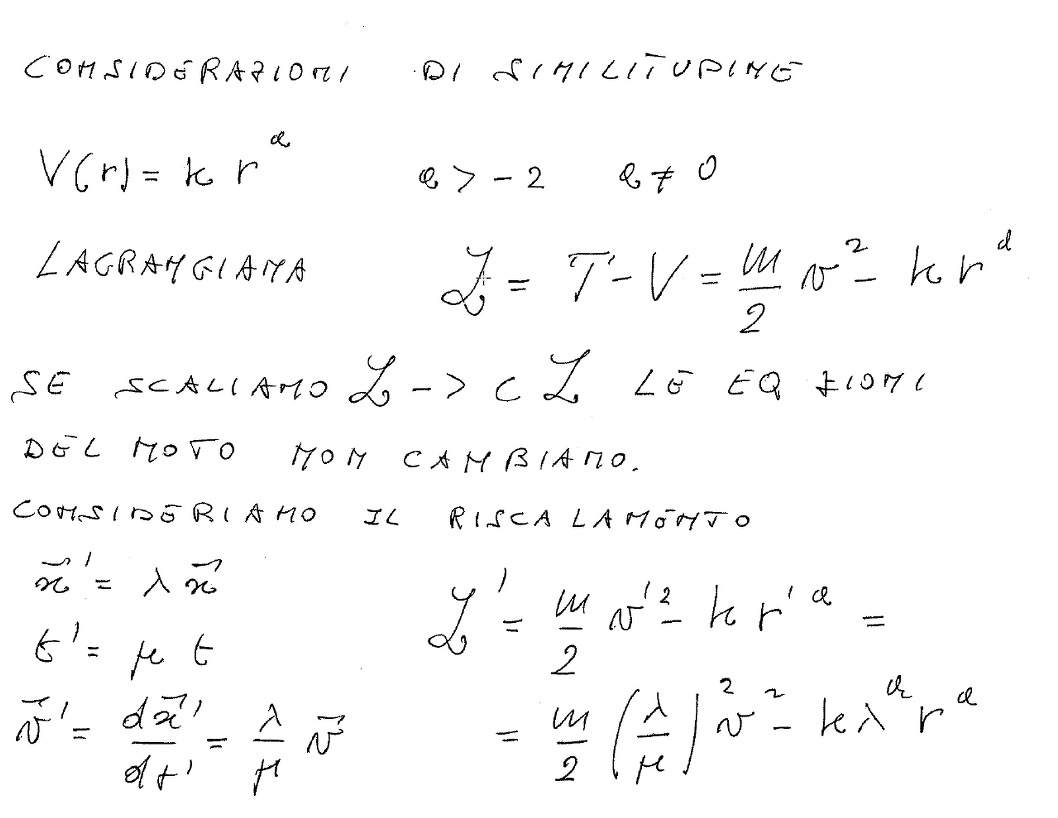 CONSIDERAZIONI DI SIMILITUDINE
V(r) = k r^α α > -2 α ≠ 0
LAGRANGIANA ℒ = T - V = m/2 v² - k r^α
SE SCALIAMO ℒ -> c ℒ LE EQ ZIONI
DEL MOTO NON CAMBIANO.
CONSIDERIAMO IL RISCALAMENTO
x⃗' = λ x⃗ ℒ' = m/2 v'² - k r'^α =
t' = μ t
v⃗' = dx⃗'/dt' = λ/μ v⃗ = m/2 (λ/μ)² v² - k λ^α r^α